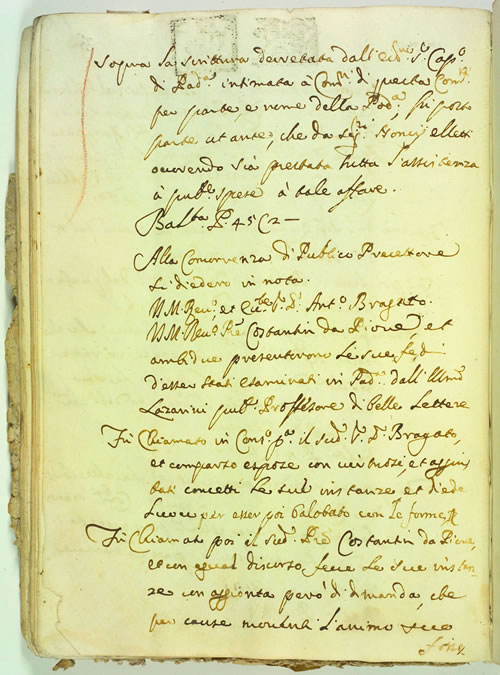 Sopra la scrittura decretata dall'ecc.mo S.r Cap.o
di Pad.a intimata à Com.i di questa Com.tà
per parte, e nome della Pod.a, fù posto
parte ut ante, che da Sig.ri Noncij elletti
ocorendo sia prestata tutta l'assistenza
à pub.e spese à tale affare.
Ball.ta P. 45 C 2 —
Alla Concorrenza di Publico Precettore
si diedero in nota.
N.M. Reu.o et Ecc.te S.r D. Ant.o Bragato.
N.M. Reu.o Pre Costantin da Pioue, et
ambidue presenterono le sue fedi
d'esser stati esaminati in Pad.a dall'Illmo
Lazarini pub.o Proffesore di belle lettere
Fù Chiamato in Cons.o p.a il sud.o S.r D. Bragato,
et comparso espose con uirtuosi, et aggius
tati concetti le sue instanze et diede
luoco per esser poi balotato con le forme
Fù Chiamato poi il sud.o Pre Costantin da Pioue,
et con egual discorso fece le sue instan
ze con aggionta però di dimanda, che
per cause mouenti l'animo suo